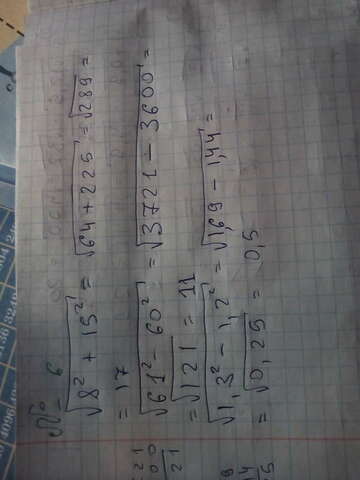 № 6
√8² + 15² = √64 + 225 = √289 =
= 17
√61² - 60² = √3721 - 3600 =
= √121 = 11
√1,3² - 1,2² = √1,69 - 1,44 =
= √0,25 = 0,5